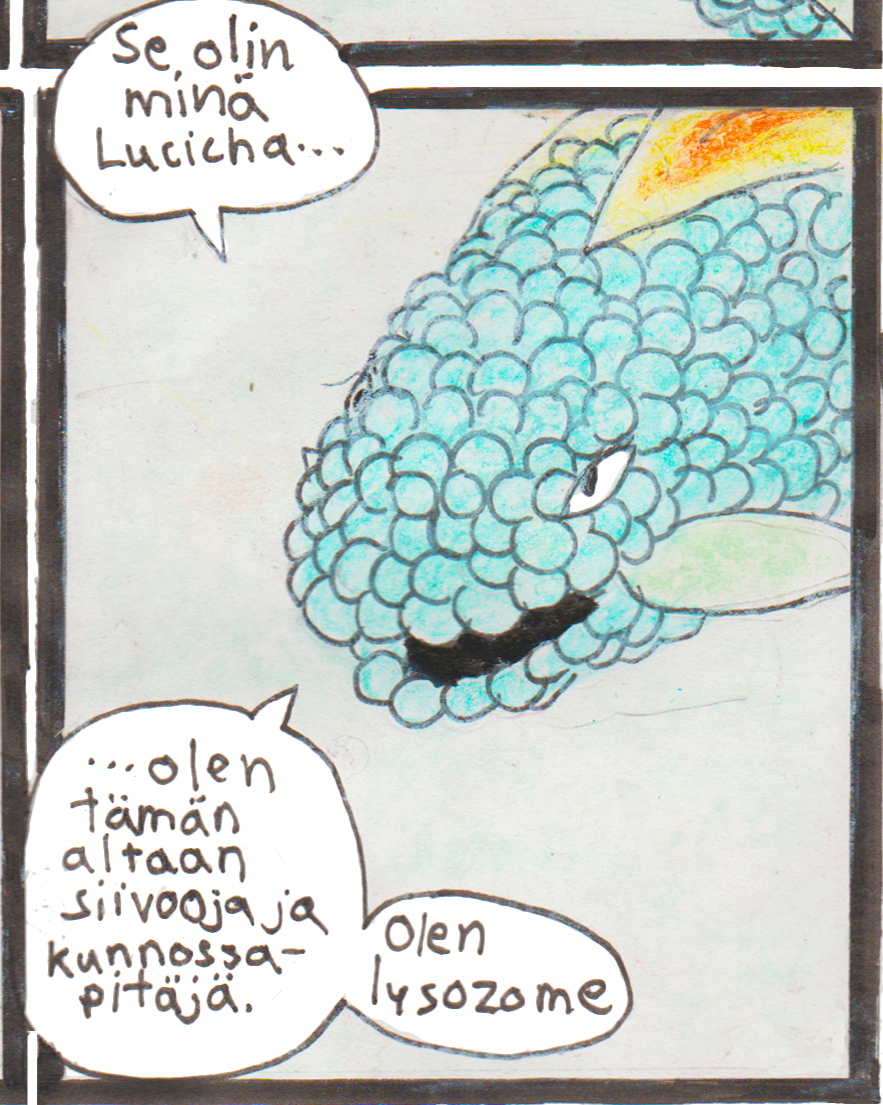 Se olin
minä
Lucicha...
...olen
tämän
altaan
siivooja ja
kunnossa-
pitäjä.
Olen
lysozome